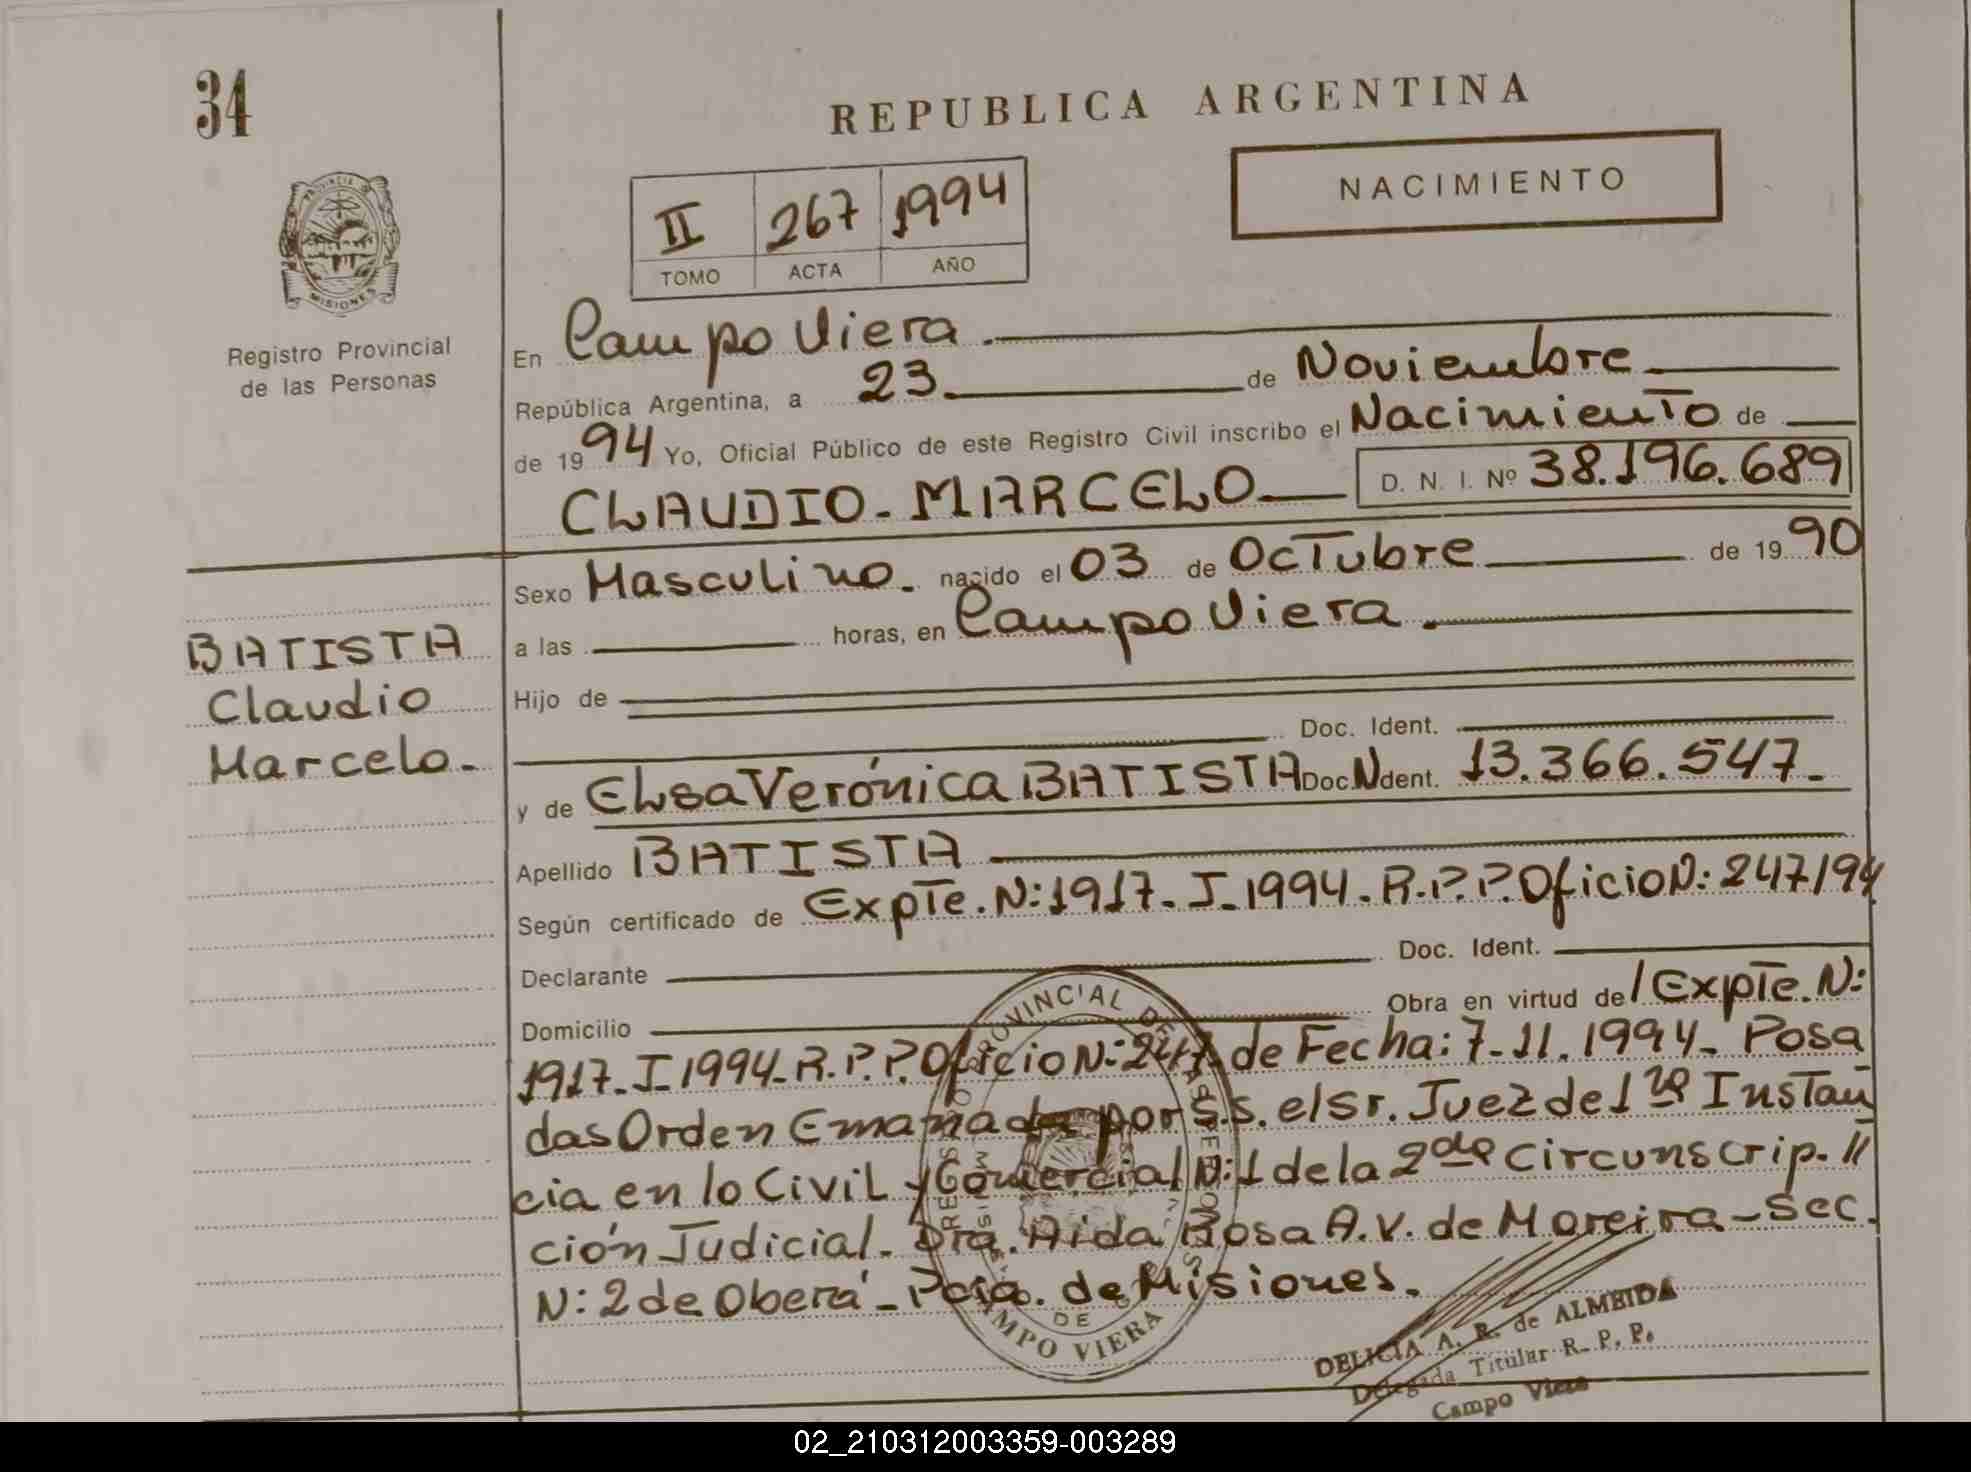 34
REPUBLICA ARGENTINA
NACIMIENTO
II 267 1994
TOMO ACTA AÑO
PROVINCIA DE
MISIONES
Registro Provincial
de las Personas
En Campo Viera.
República Argentina, a 23. de Noviembre
de 1994 Yo, Oficial Público de este Registro Civil inscribo el Nacimiento de
CLAUDIO-MARCELO D. N. I. Nº 38.196.689
Sexo Masculino. nacido el 03 de Octubre de 1990
a las horas, en Campo Viera.
BATISTA
Claudio
Marcelo.
Hijo de
Doc. Ident.
y de Elsa Verónica BATISTA Doc. Ident. N 13.366.547.
Apellido BATISTA
Según certificado de Expte. N: 1917-I-1994-R.P.P. Oficio N: 247/94
Declarante Doc. Ident.
Domicilio Obra en virtud de/Expte. N:
1917-I-1994-R.P.P. Oficio N: 247 de Fecha: 7-11.1994- Posa
das Orden Emanada por S.S. el Sr. Juez de 1ra Instan
cia en lo Civil y Comercial N: 1 de la 2da Circunscrip-//
ción Judicial- Dra. Aida Rosa A.V. de Moreira-Sec.
N: 2 de Oberá- Pcia. de Misiones.
REGISTRO PROVINCIAL DE LAS PERSONAS
MISIONES
DE
CAMPO VIERA
DELICIA A. R. de ALMEIDA
Delegada Titular R. P. P.
Campo Viera
02_210312003359-003289